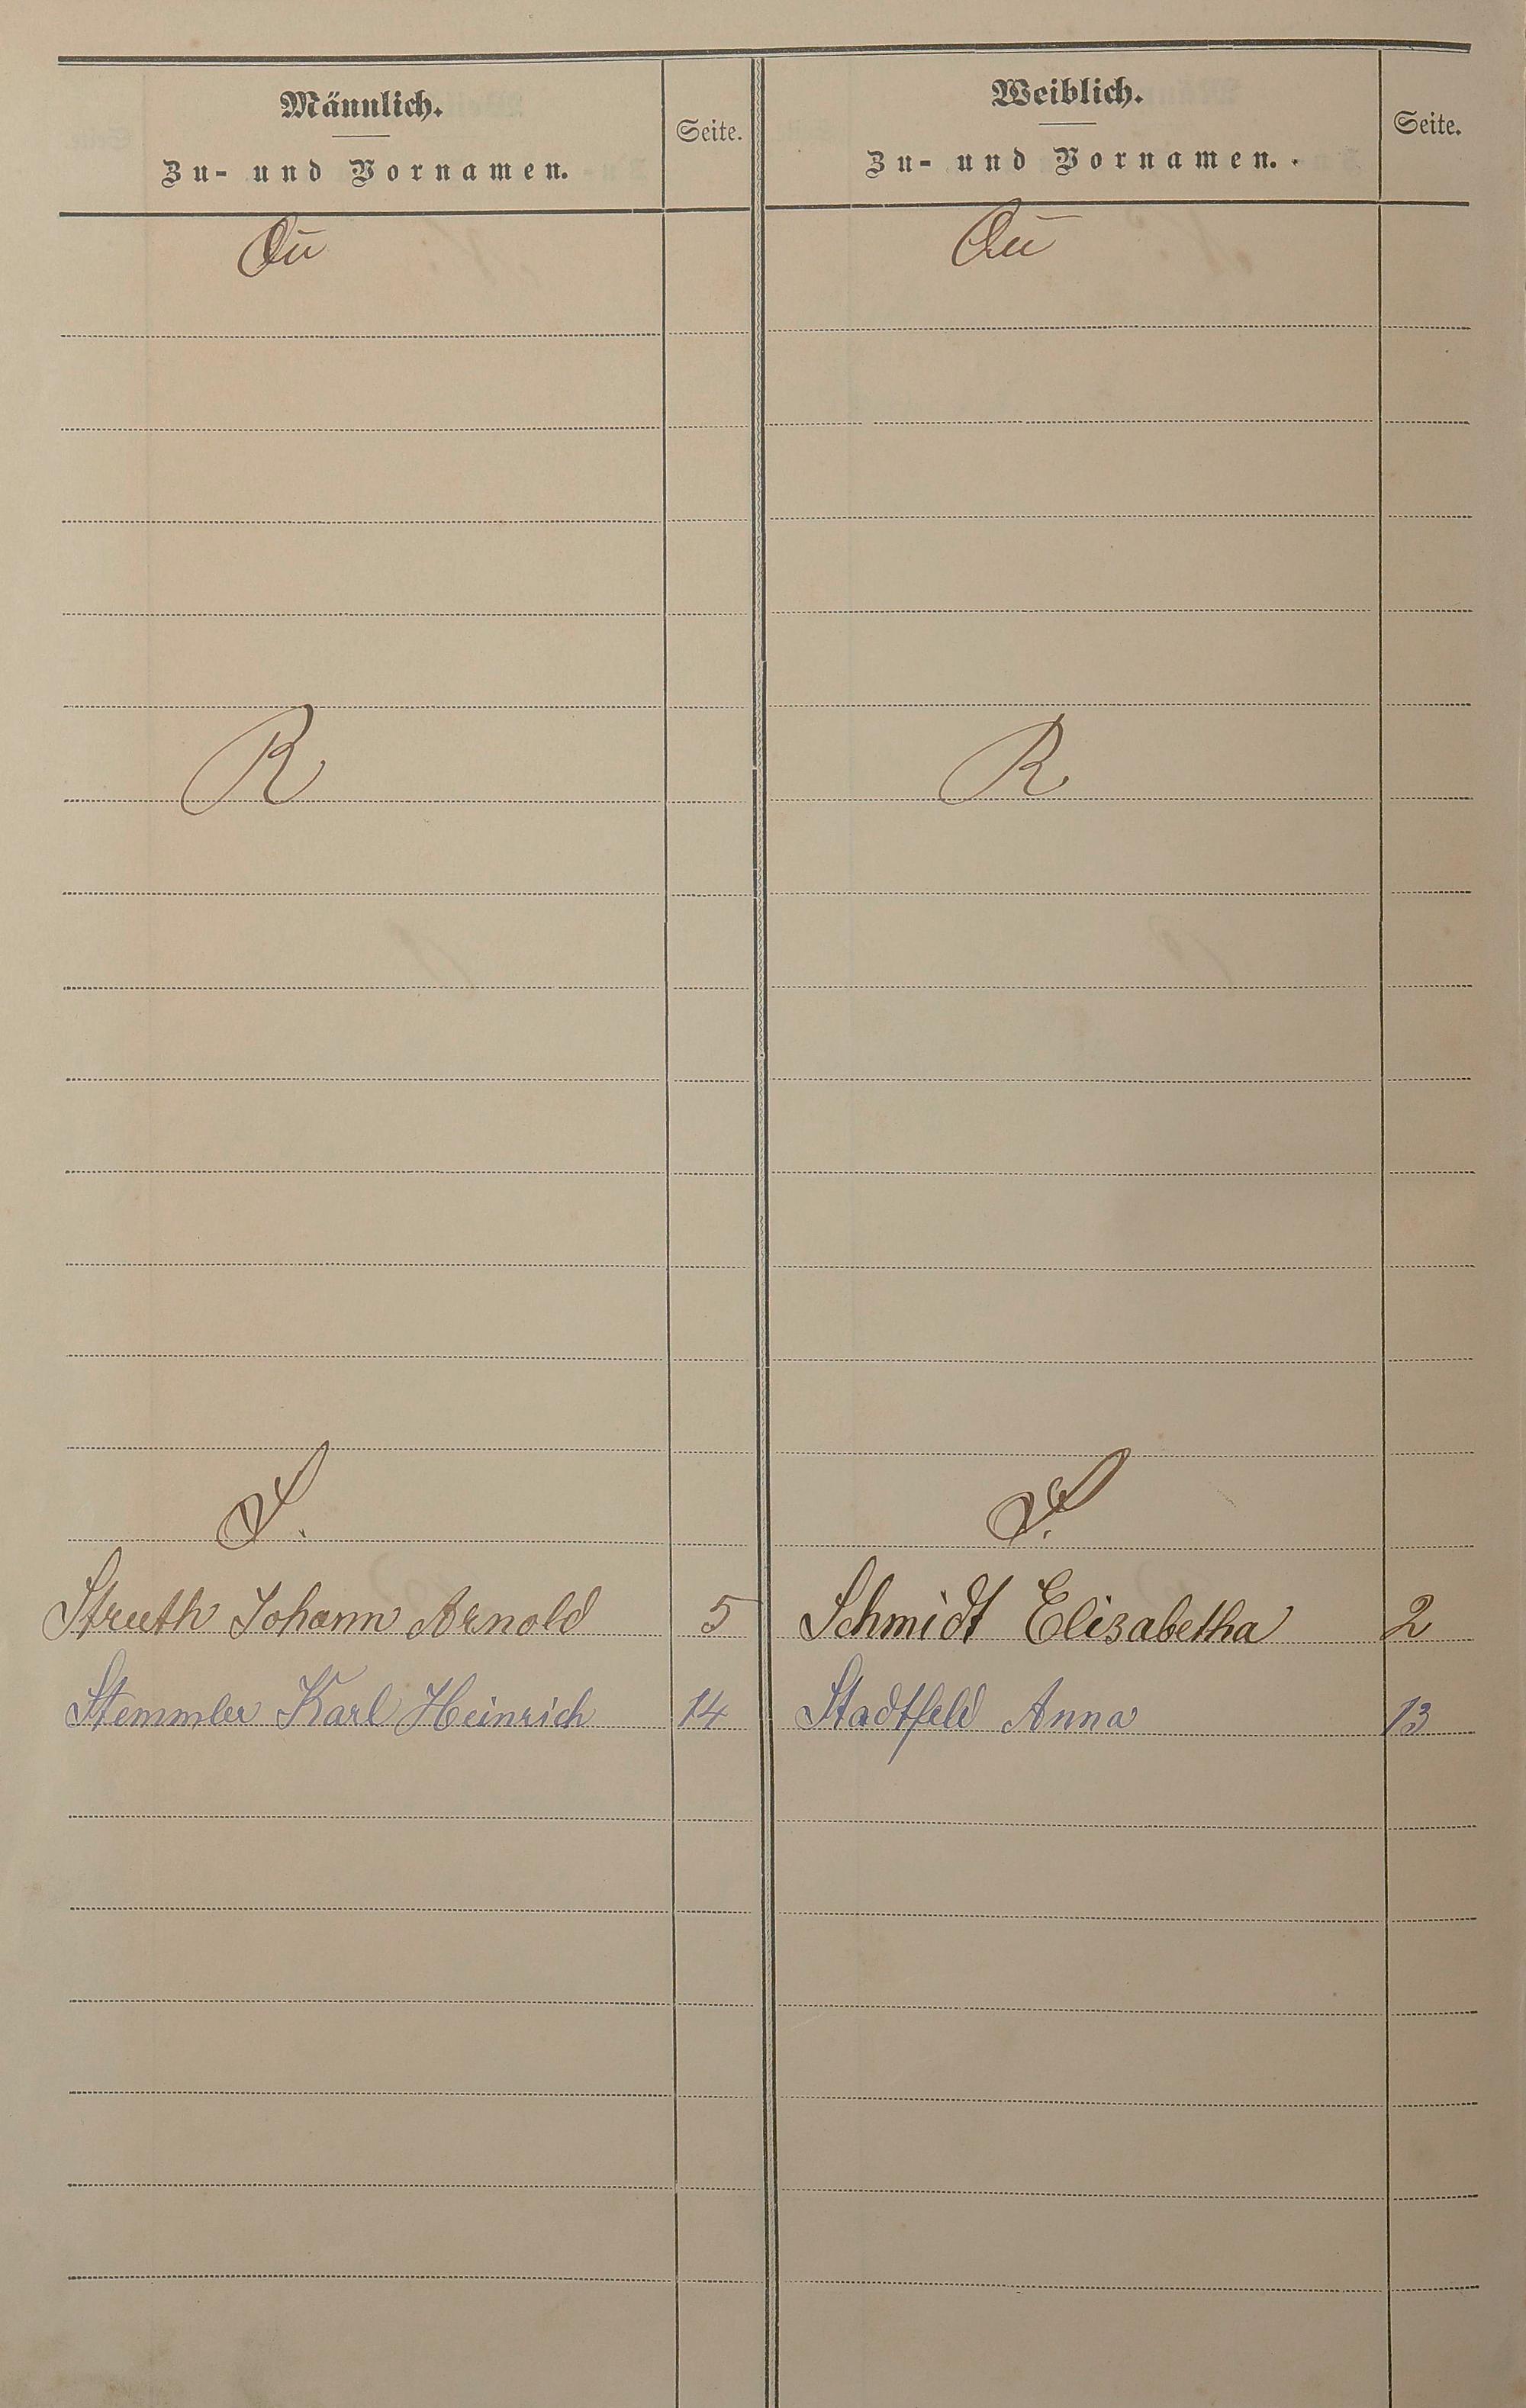 Männlich. Weiblich.
Zu- und Vornamen. Seite. Zu- und Vornamen. Seite.
Qu Qu
R R.
S. S.
Struth Johann Arnold 5 Schmidt Elisabetha 2
Stemmler Karl Heinrich 14 Stadtfeld Anna 13